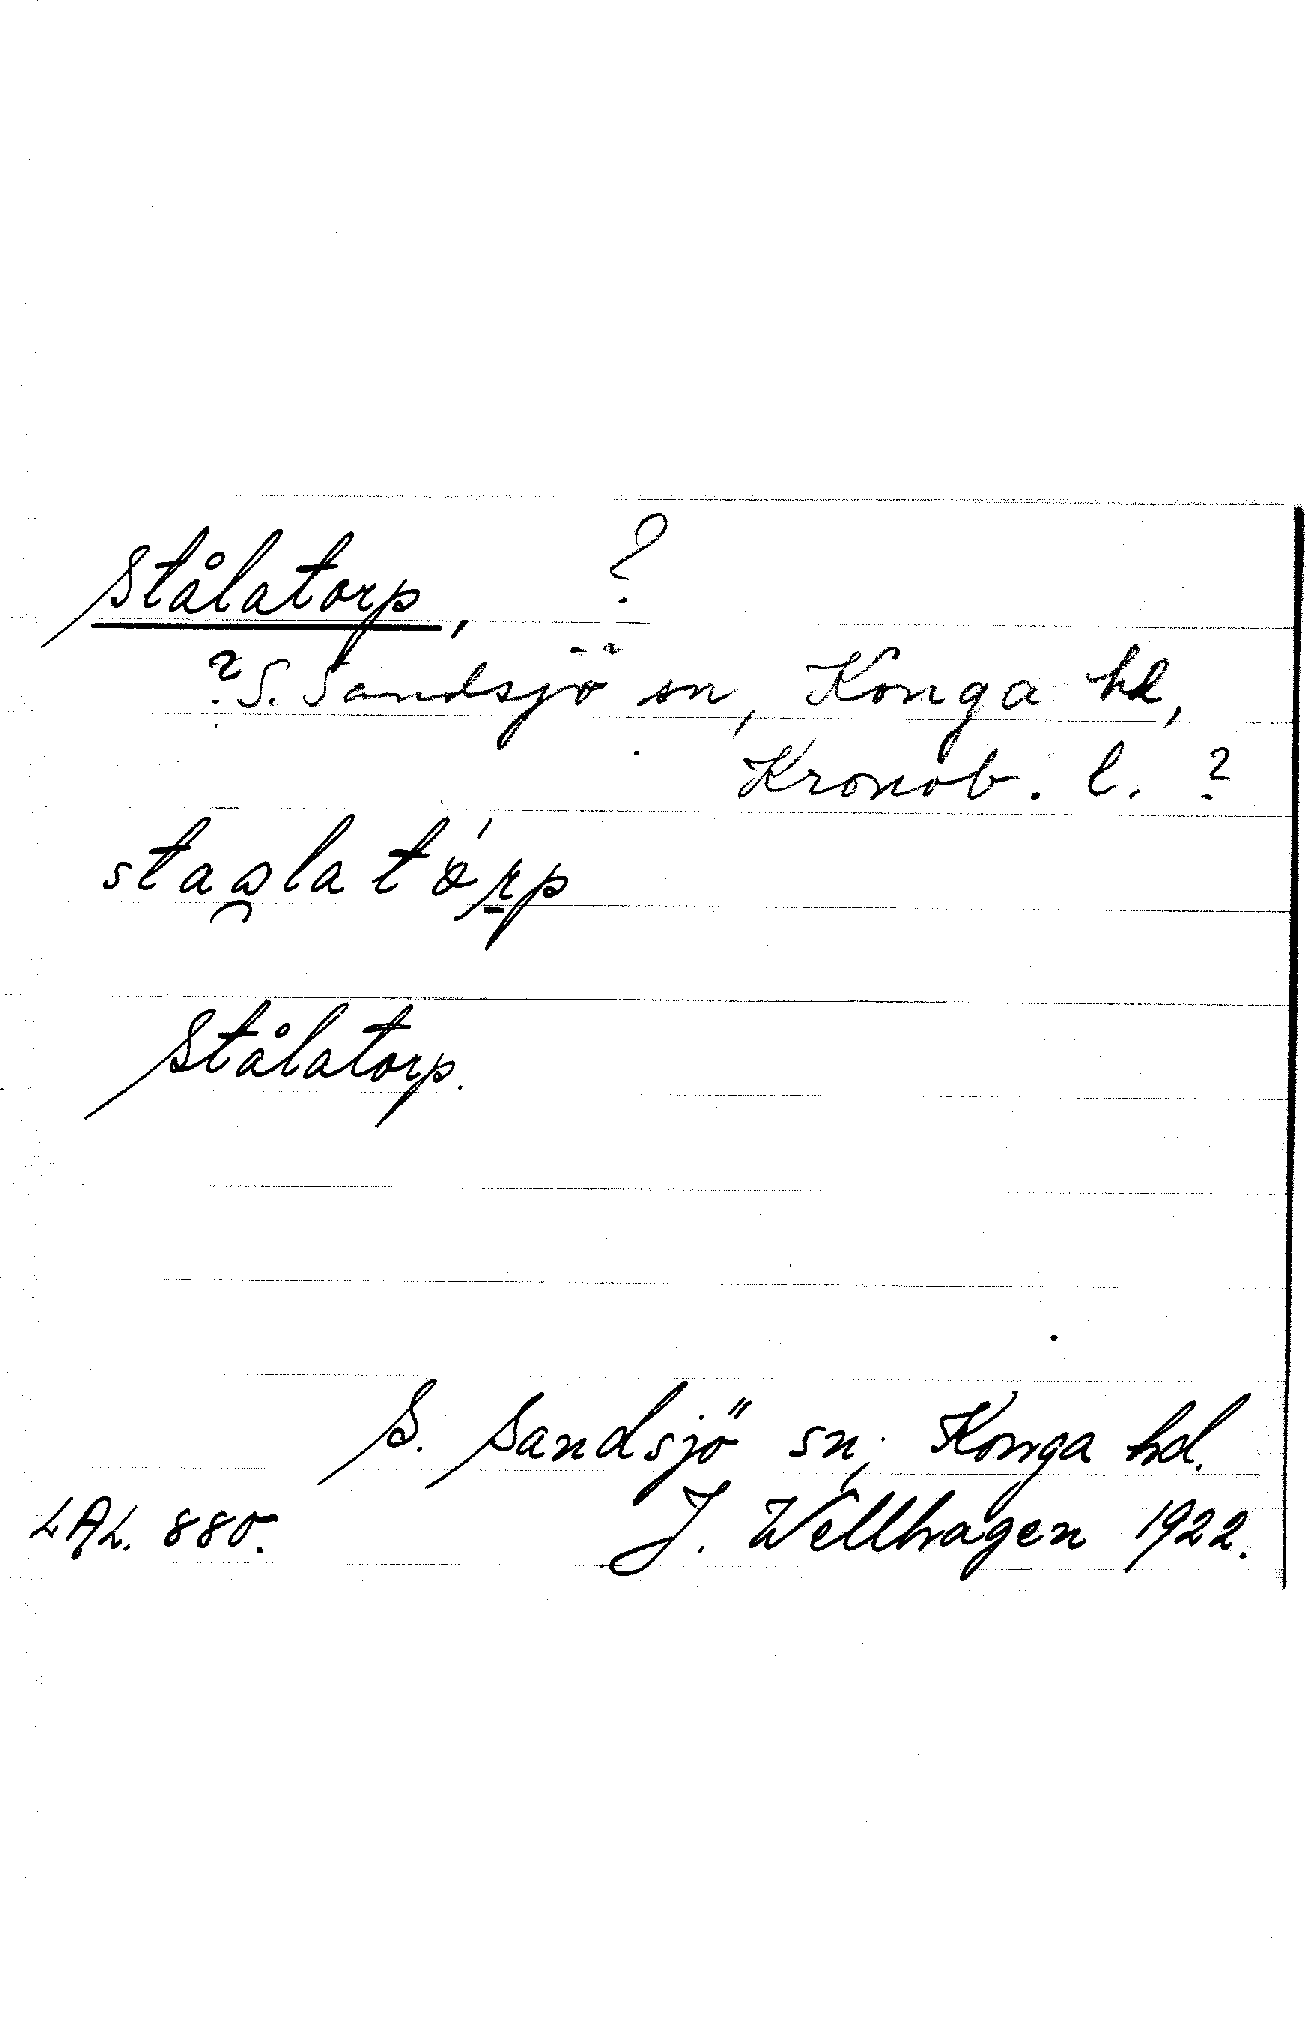 Stålatorp, ?
? S. Sandsjö sn, Konga hd,
Kronob. l. ?
staɷ̯la tórp
Stålatorp.
S. Sandsjö sn, Konga hd.
LAL. 880. J. Wellhagen 1922.